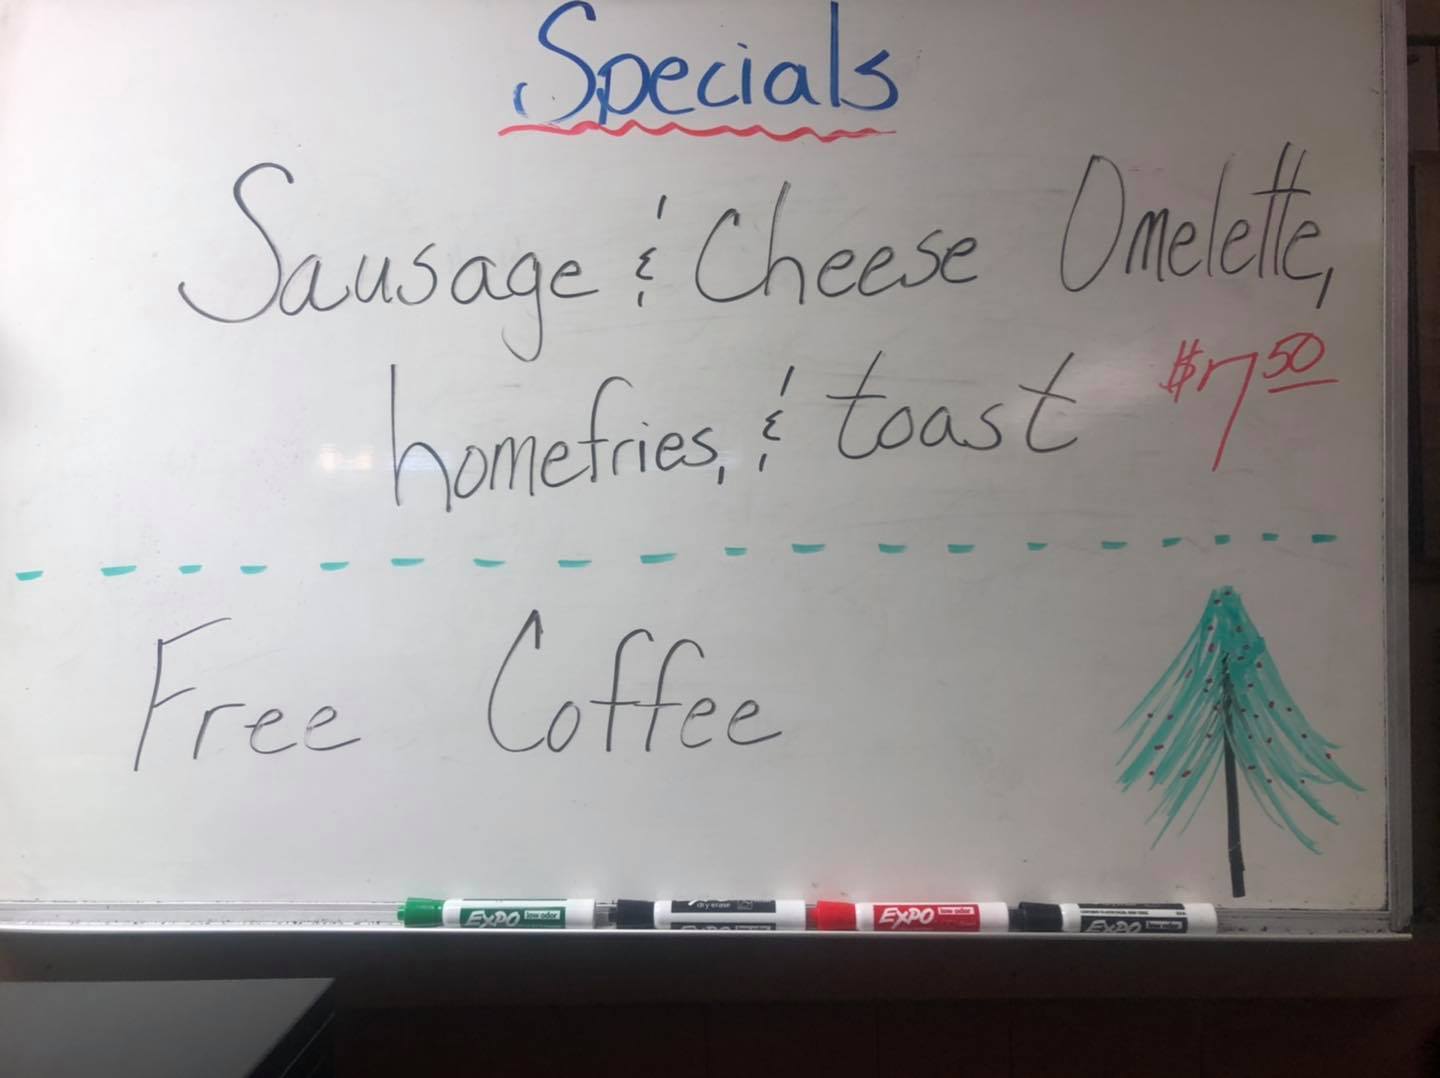 Specials
Sausage & Cheese Omelette,
homefries, & toast $7.50
Free Coffee
EXPO low odor
dry erase
EXPO
EXPO low odor
EXPO